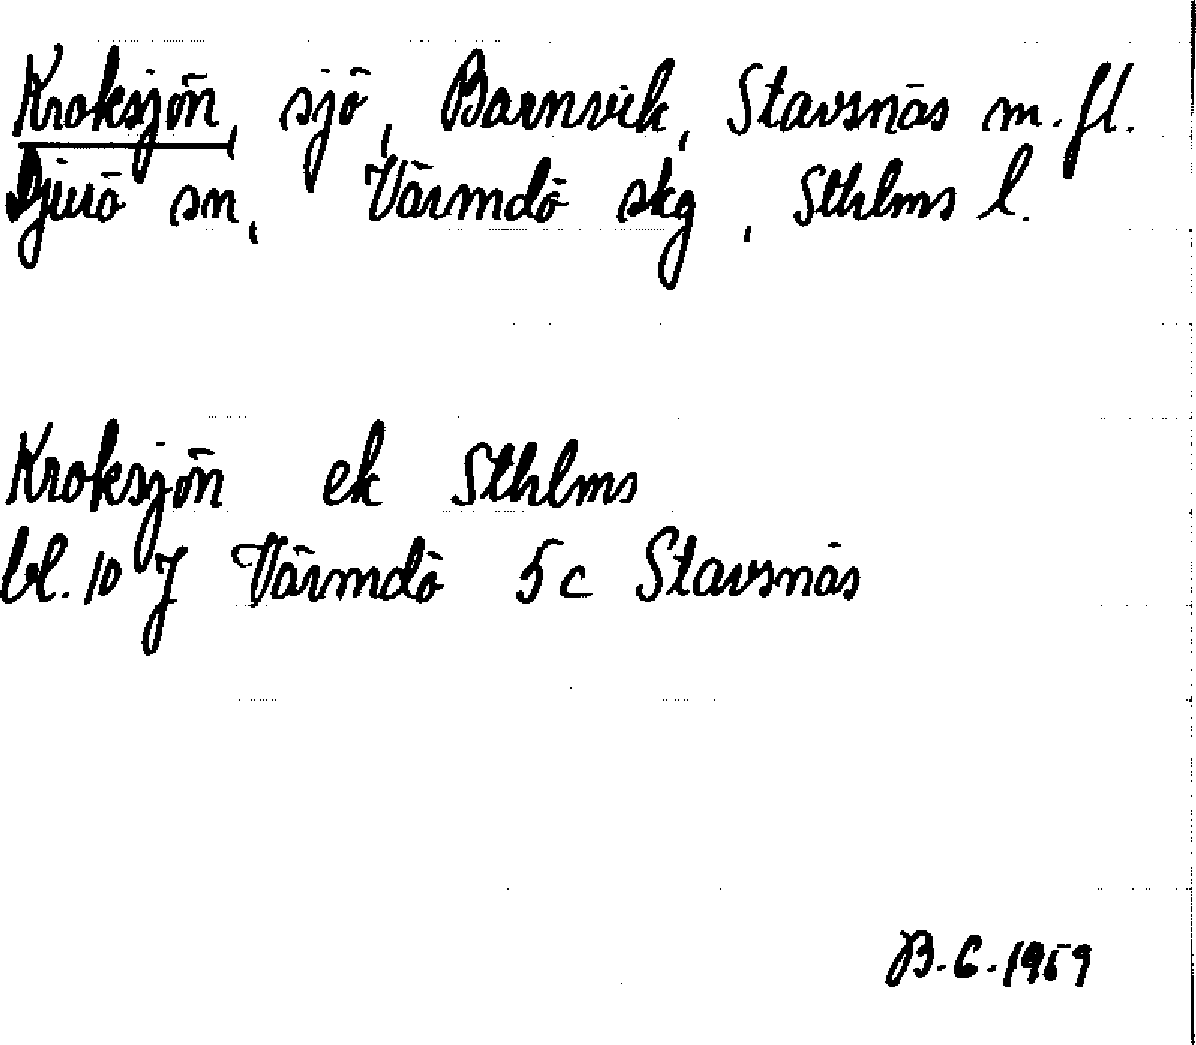 Kroksjön, sjö, Barnvik, Stavsnäs m.fl.
Djurö sn, Värmdö skg, Sthlms l.
Kroksjön ek Sthlms
bl. 10 J Värmdö 5 c Stavsnäs
B.C. 1959